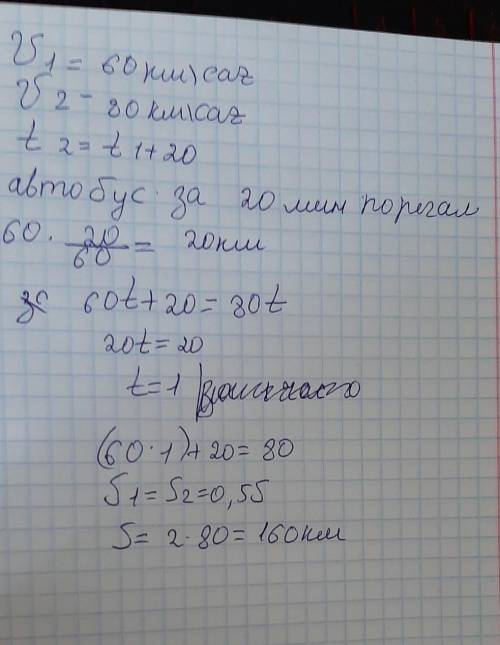 V1 = 60 км\саг
V2 - 80 км\саг
t2 = t1 + 20
автобус за 20 мин
60 · 20/60 = 20 км
60t + 20 = 80t
20t = 20
t = 1
(60 · 1) + 20 = 80
S1 = S2 = 0,5S
S = 2 · 80 = 160 км